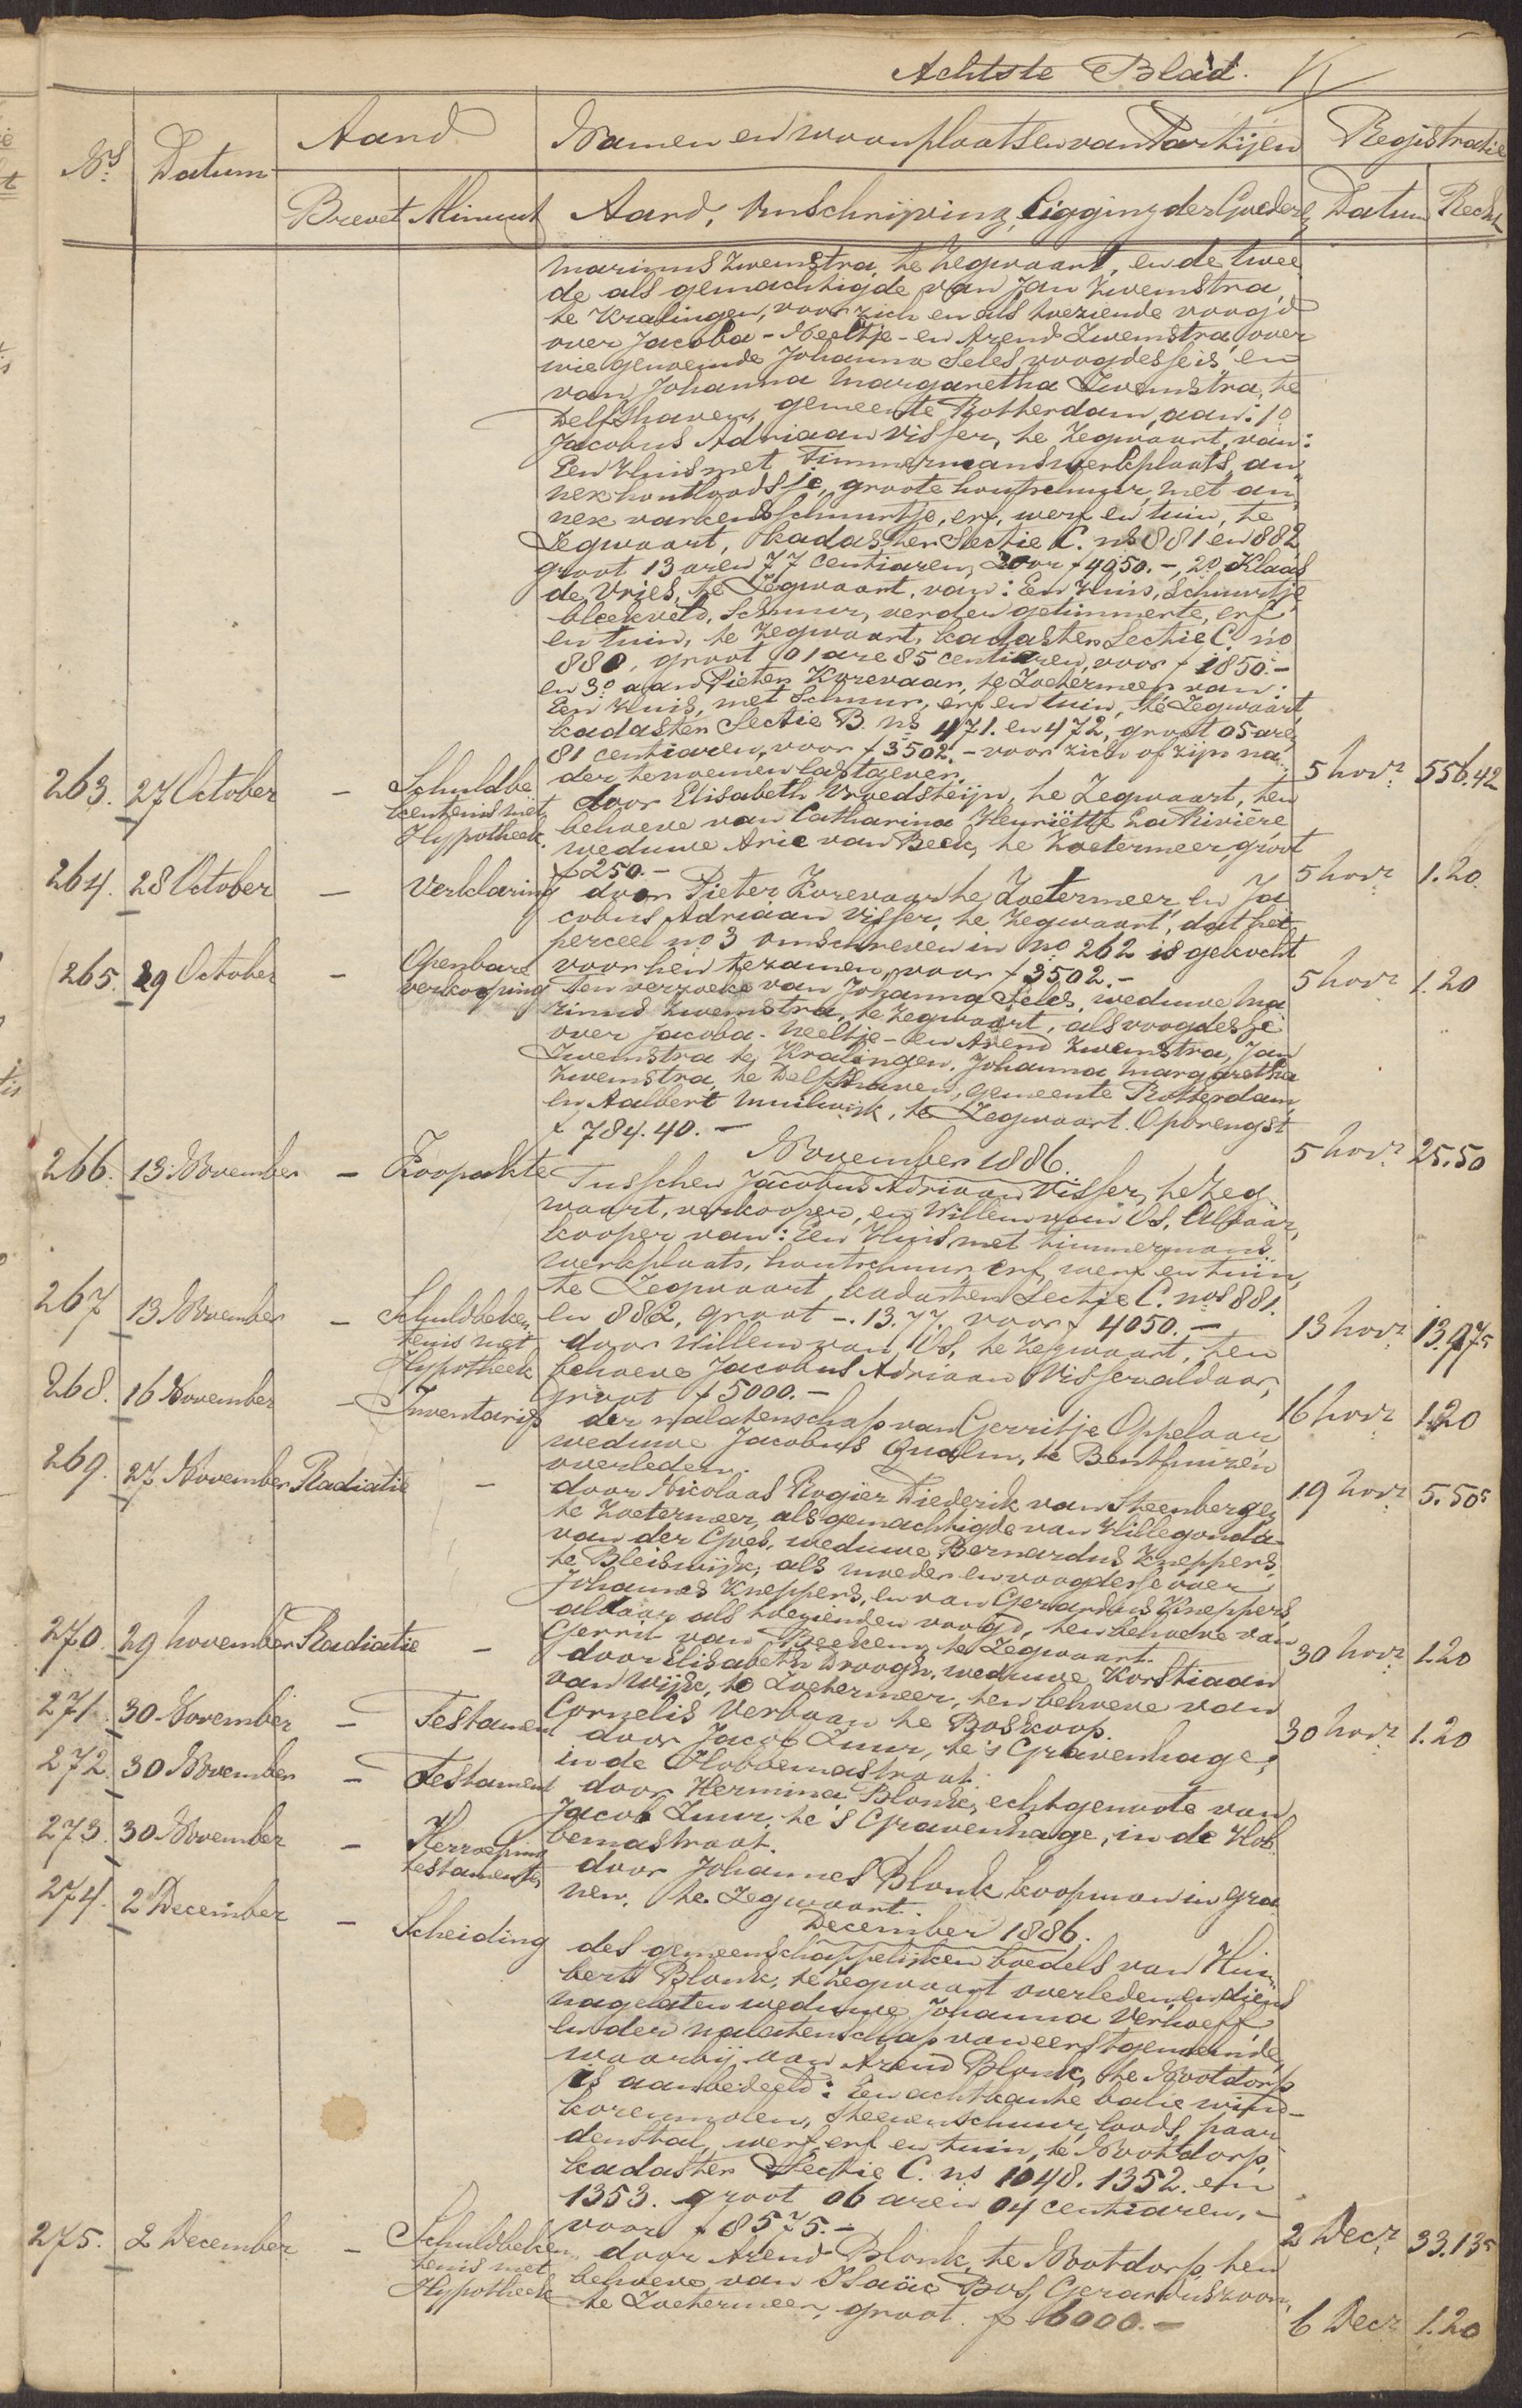 Achtste Blad.
No. Datum Aard Namen en woonplaatsen van Partijen Registratie
Brevet Minuut Aard, Omschrijving, Ligging der Goederen Datum Recht
Marinus Zwemstra, te Zegwaart, en de twee
de als gemachtigde van Jan Zwemstra,
te Kralingen, voor zich en als toeziende voogd
over Jacoba - Neeltje - en Arend Zwemstra, over
wie genoemde Johanna Seles voogdesse is en
van Johanna Margaretha Zwemstra, te
Delfshaven, gemeente Rotterdam, aan: 1o
Jacobus Adriaan Visser, te Zegwaart, van:
Een Huis met Timmermanswerkplaats, an
nex houtloodsje, groote houtschuur, met an
nex varkensschuurtje, erf, werf en tuin, te
Zegwaart, kadaster Sectie C. ns 881 en 882
groot 13 aren 77 centiaren, voor f 4950.-, 2o. Klaas
de Vries, te Zegwaart, van: Een Huis, Schuurtje
bleekveld, Schuur, verder getimmerte, erf
en tuin, te Zegwaart, kadaster Sectie C. no
880, groot 01 are 85 centiaren, voor f 1850.-
en 3o. aan Pieter Korevaar, te Zoetermeer van:
Een Huis, met Schuur, erf en tuin, te Zegwaart,
kadaster Sectie B. ns 471. en 472, groot 05 are
81 centiaren, voor f 3502.- voor zich of zijn na
der te noemen lastgever. 5 Novr 556.42
263. 27 October - Schuldbe door Elisabeth Vroedsteijn, te Zegwaart, ten
kentenis met behoeve van Catharina Henriëtte La Rivière
Hypotheek. weduwe Arie van Beek, te Zoetermeer, groot
f 250.- 5 Novr 1.20.
264. 28 October - Verklaring door Pieter Korevaar te Zoetermeer en Ja
cobus Adriaan Visser, te Zegwaart, dat het
perceel no 3 omschreven in no 262 is gekocht
voor hen tezamen, voor f 3502.- 5 Novr 1.20
265. 29 October - Openbare verkooping Ten verzoeke van Johanna Seles, weduwe Ma
rinus Zwemstra, te Zegwaart, als voogdesse
over Jacoba - Neeltje - en Arend Zwemstra, Jan
Zwemstra te Kralingen. Johanna Margaretha
Zwemstra, te Delfshaven, gemeente Rotterdam,
en Aalbert Muilwijk, te Zegwaart. Opbrengst
f 784.40.- 5 Novr 25.50
November 1886.
266. 13 November - Koopakte Tusschen Jacobus Adriaan Visser, te Zeg
waart, verkooper, en Willem van Os, aldaar,
kooper van: Een Huis met timmermans
werkplaats, houtschuur, erf, werf en tuin,
te Zegwaart, kadaster Sectie C. nos 881.
en 882, groot -. 13.77. voor f 4050.- 13 Novr 13.975
267 13 November - Schuldbeken door Willem van Os, te Zegwaart, ten
tenis met behoeve Jacobus Adriaan Visser aldaar,
Hypotheek groot f 5000.- 16 Novr 1.20
268. 16 November - Inventaris der nalatenschap van Gerritje Oppelaar,
weduwe Jacobus Qualm, te Benthuizen
overleden. 19 Novr 5.505
269. 27 November Radiatie - door Nicolaas Rogier Diederik van Steenbergen
te Zoetermeer, als gemachtigde van Hillegonda
van der Goes, weduwe Bernardus Kneppers,
te Bleiswijk, als moeder en voogdesse over
Johannes Kneppers, en van Gerardus Kneppers,
aldaar, als toezienden voogd, ten behoeve van
Gerrit van Beekem te Zegwaart. 30 Novr 1.20
270. 29 November Radiatie - door Elisabeth Droogh, weduwe Korstiaan
van Wijk, te Zoetermeer, ten behoeve van
Cornelis Verbaan te Boskoop. 30 Novr 1.20
271. 30 November - Testament door Jacob Zuur, te 's Gravenhage,
in de Hobbemastraat.
272. 30 November - Testament door Hermina Blonk, echtgenoote van
Jacob Zuur, te 's Gravenhage, in de Hob
bemastraat.
273. 30 November - Herroeping testamenten door Johannes Blonk koopman in gra
nen, te Zegwaart.
December 1886.
274. 2 December - Scheiding des gemeenschappelijken boedels van Hui
bert Blonk, te Zegwaart overleden, en diens
nagelaten weduwe Johanna Verhoeff
en der nalatenschap van eerstgemelde,
waarbij aan Arend Blonk, te Nootdorp
is aanbedeeld: Een achtkante balie wind-
korenmolen, steenenschuur, loods, paar
denstal, werf, erf en tuin, te Nootdorp,
kadaster Sectie C. ns 1048. 1352. en
1353. groot 06 aren 04 centiaren,-
voor f 8575.- 2 Decr 33.135
275. 2 December - Schuldbeken door Arend Blonk, te Nootdorp, ten
tenis met behoeve van Isaäc Bos, Gerarduszoon,
Hypotheek te Zoetermeer, groot f 6000.- 6 Decr 1.20